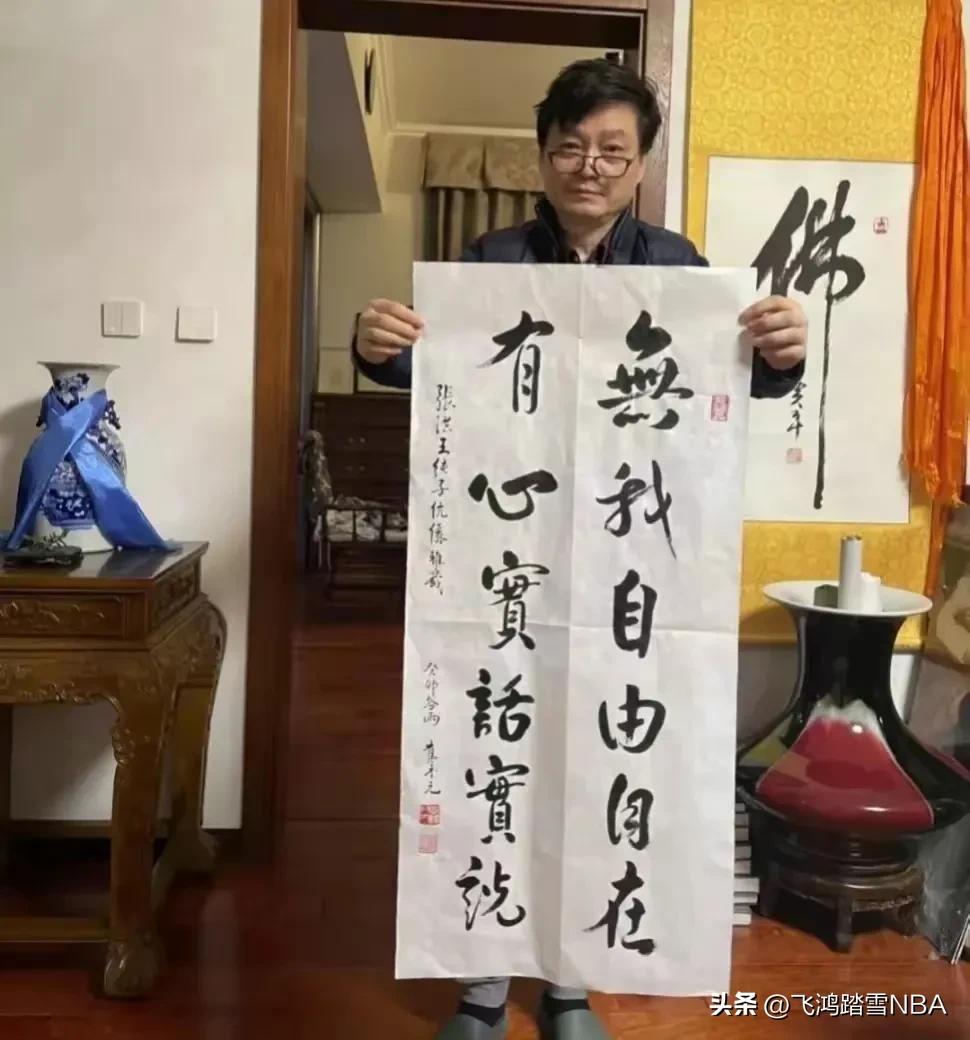 無我自由自在
有心實話實説
張洪王子伉儷雅
癸卯谷雨 崔永元
佛
头条 @飞鸿踏雪NBA